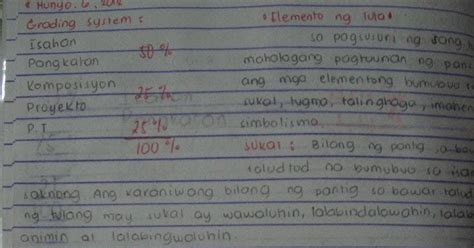 • Hunyo. 6, 2018
Grading System :
Isahan
Pangkatan 50 %
Komposisyon
Proyekto 25 %
P.T 25 %
100 %
• Elemento ng tula •
sa pagsusuri ng isang
mahalagang pagtuunan ng pansi
ang mga elementong bumubuo
sukat, tugma, talinghaga, imahe
simbolismo.
Sukat : Bilang ng pantig sa baw
taludtod na bumubuo sa isan
saknong. Ang karaniwang bilang ng pantig sa bawat talud
ng tulang may sukat ay wawaluhin, lalabindalawahin, lalabin
animin at lalabingwaluhin.